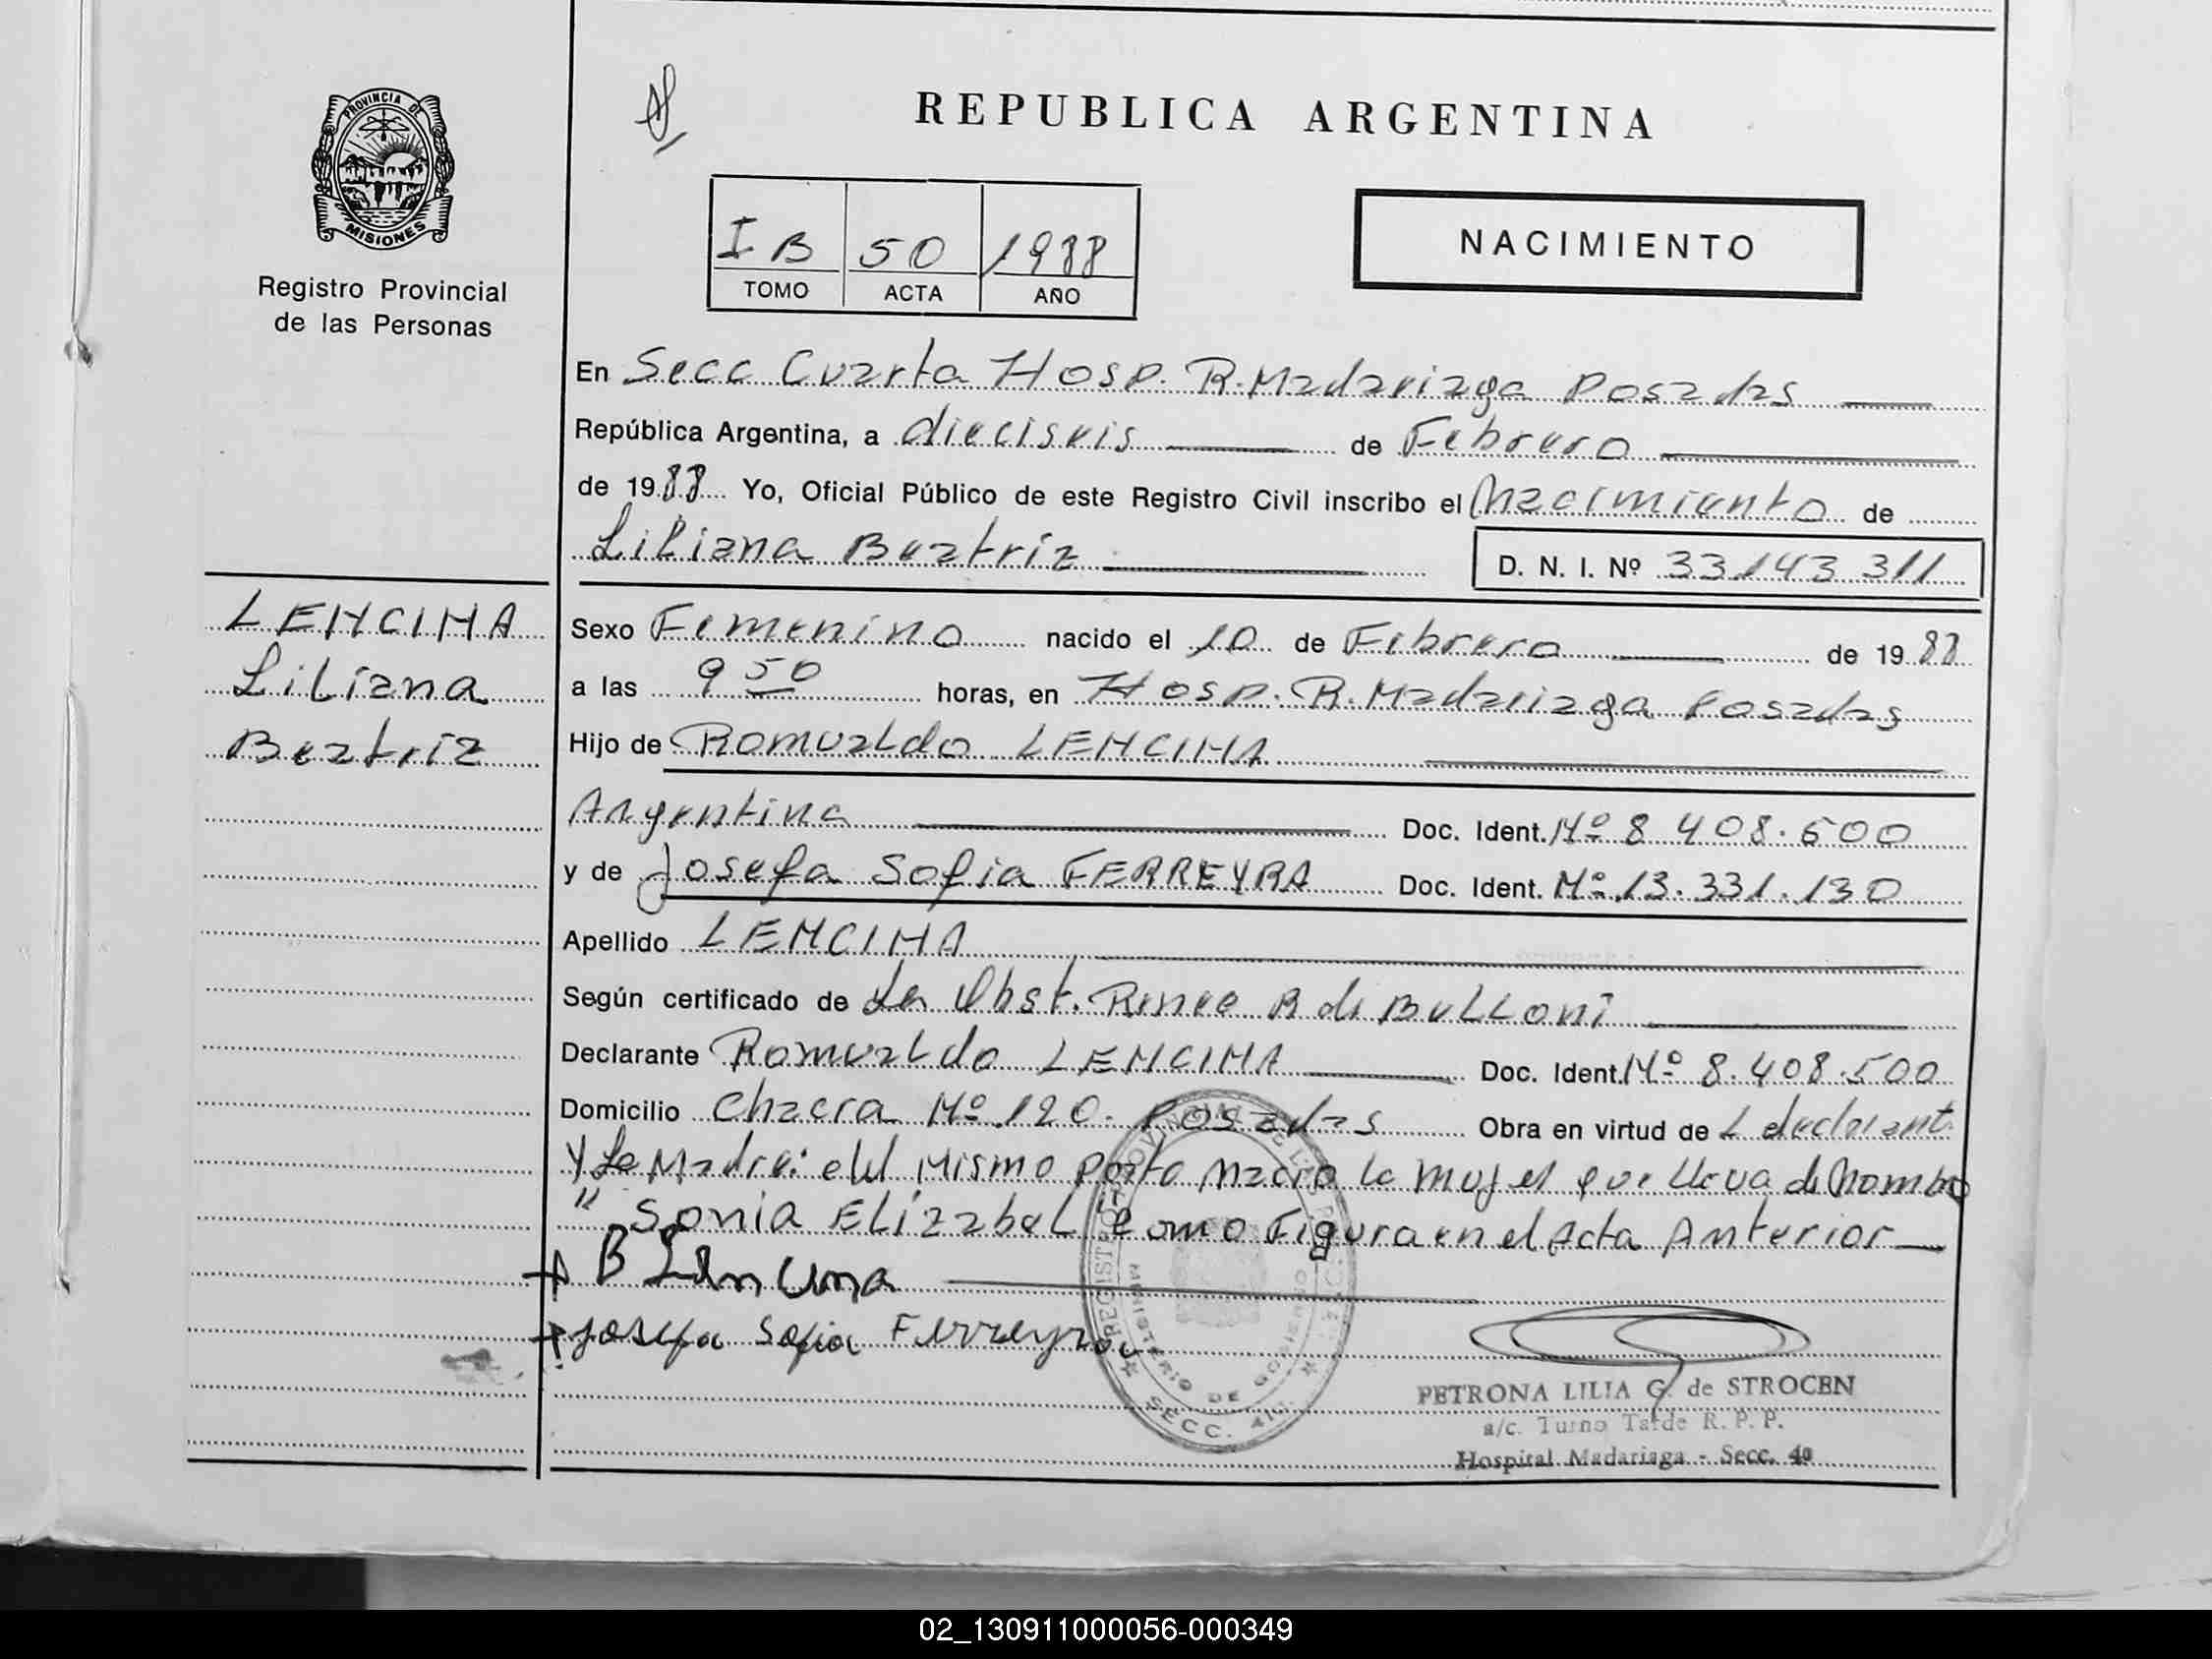 REPUBLICA ARGENTINA
PROVINCIA DE
MISIONES
Registro Provincial
de las Personas
I B 50 1988
TOMO ACTA AÑO
NACIMIENTO
En Secc Cuarta Hosp. R. Madariaga Posadas
República Argentina, a dieciseis de Febrero
de 1988 Yo, Oficial Público de este Registro Civil inscribo el Nacimiento de
Liliana Beatriz D. N. I. Nº 33.143.311
LENCINA
Liliana
Beatriz
Sexo Femenino nacido el 10 de Febrero de 1988
a las 9 50 horas, en Hosp. R. Madariaga Posadas
Hijo de Romualdo LENCINA
Argentina Doc. Ident. Nº 8.408.500
y de Josefa Sofia FERREYRA Doc. Ident. Nº 13.331.130
Apellido LENCINA
Según certificado de La Obst. Renee R de BULLoni
Declarante Romualdo LENCINA Doc. Ident. Nº 8.408.500
Domicilio Chacra Nº 120. Posadas Obra en virtud de L declarant.
Y La Madre: del Mismo Parto Nacio la mujer que lleva de Nombre
" Sonia Elizabet como Figura en el Acta Anterior
Josefa Sofia Ferreyra
REGISTRO PROVINCIAL DE LAS PERSONAS
MINISTERIO DE GOBIERNO
SECC. 4ta.
PETRONA LILIA G. de STROCEN
a/c. Turno Tarde R. P. P.
Hospital Madariaga - Secc. 4a
02_130911000056-000349